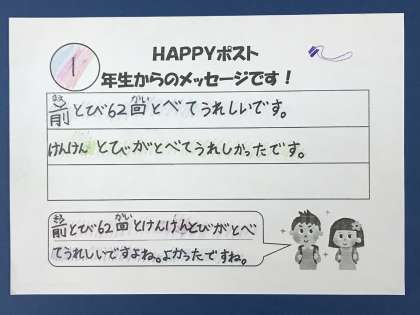 1
HAPPYポスト
年生からのメッセージです！
まえ
前とび62回とべてうれしいです。
かい
けんけんとびがとべてうれしかったです。
まえ
前とび62回とけんけんとびがとべ
かい
てうれしいですよね。よかったですね。